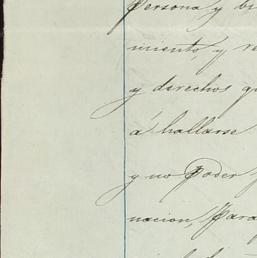 persona y bi
miento, y re
y derechos qu
á hallarse
y no Poder
nacion, Para